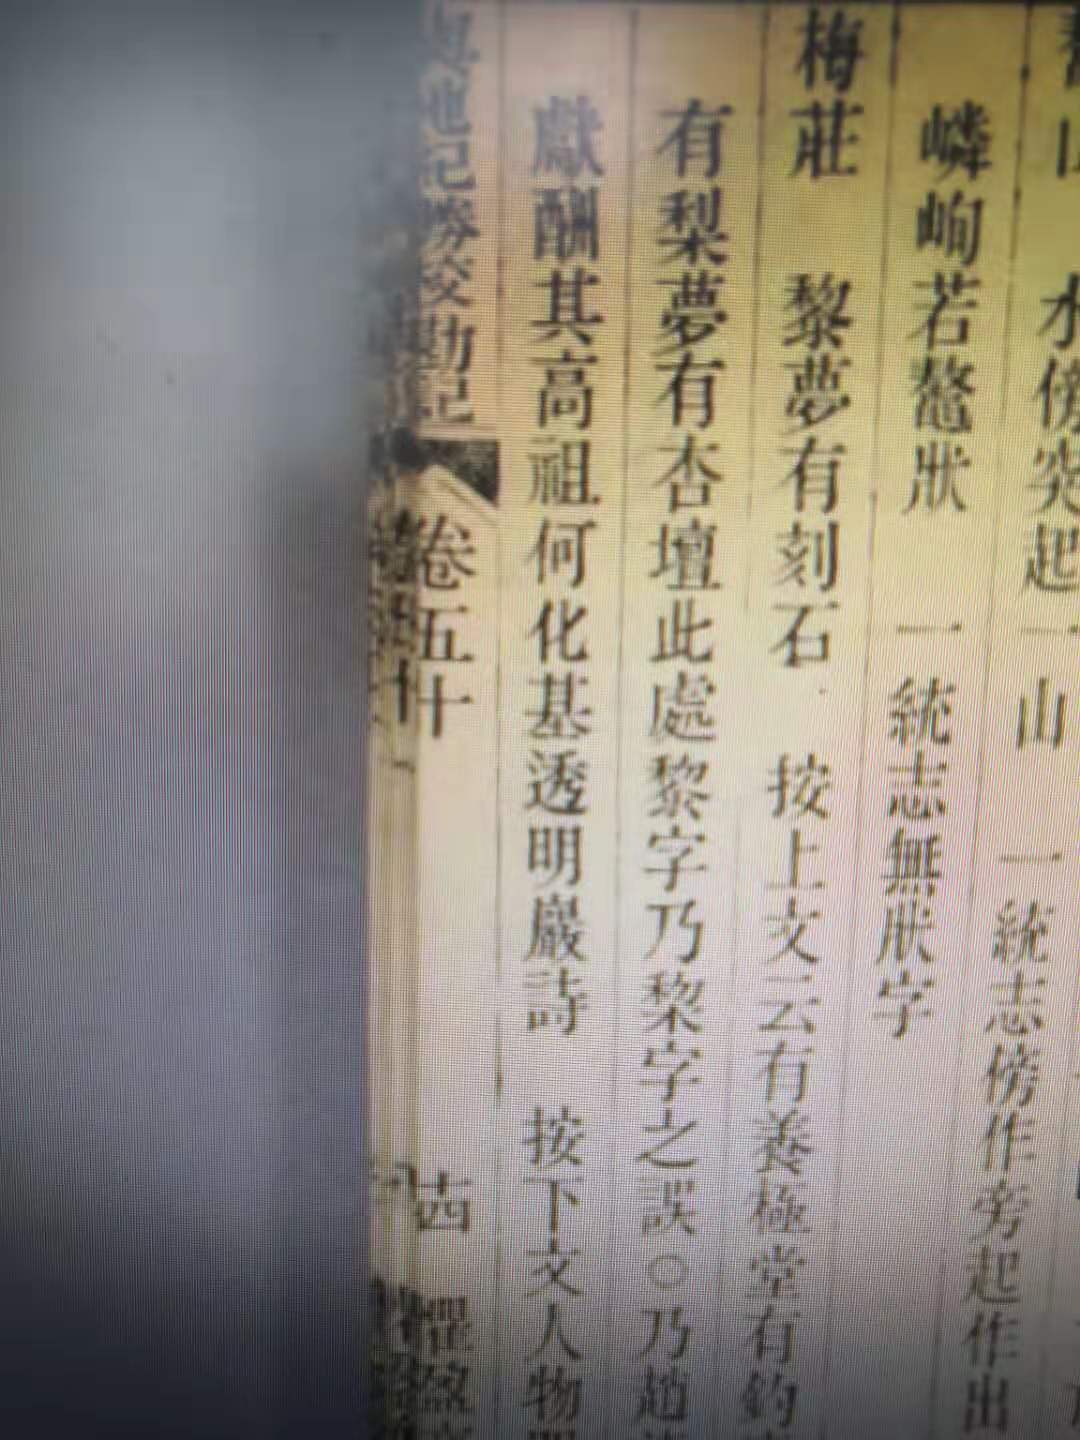 水傍突起一山 一統志傍作旁起作出
嶙峋若鼇狀 一統志無狀字
梅莊 黎夢有刻石 按上文云有養極堂有釣
有梨夢有杏壇此處黎字乃棃字之誤○乃趙
獻酬其高祖何化基透明巖詩 按下文人物
輿地紀勝校勘記 卷五十 懼盈